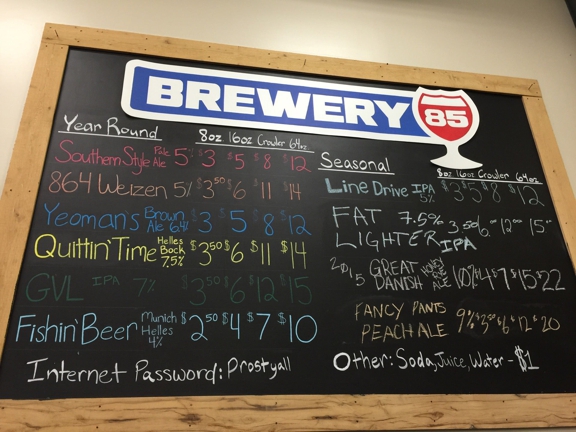 BREWERY 85
Year Round 8oz 16oz Crowler 64oz
Southern Style Pale Ale 5% $3 $5 $8 $12
864 Weizen 5% $3.50 $6 $11 $14
Yeoman's Brown Ale 6.4% $3 $5 $8 $12
Quittin' Time Helles Bock 7.5% $3.50 $6 $11 $14
GVL IPA 7% $3.50 $6 $12 $15
Fishin' Beer Munich Helles 4% $2.50 $4 $7 $10
Internet Password: Prostyall
Seasonal 8oz 16oz Crowler 64oz
Line Drive IPA 5% $3 $5 $8 $12
FAT 7.5% 3.50 $6.00 $12.00 15.00
LIGHTER IPA
2015 GREAT DANISH HONEY RYE ALE 10% $4 $7 $15 $22
FANCY PANTS
PEACH ALE 9% $3.50 $6 $12 $20
Other: Soda, Juice, Water - $1